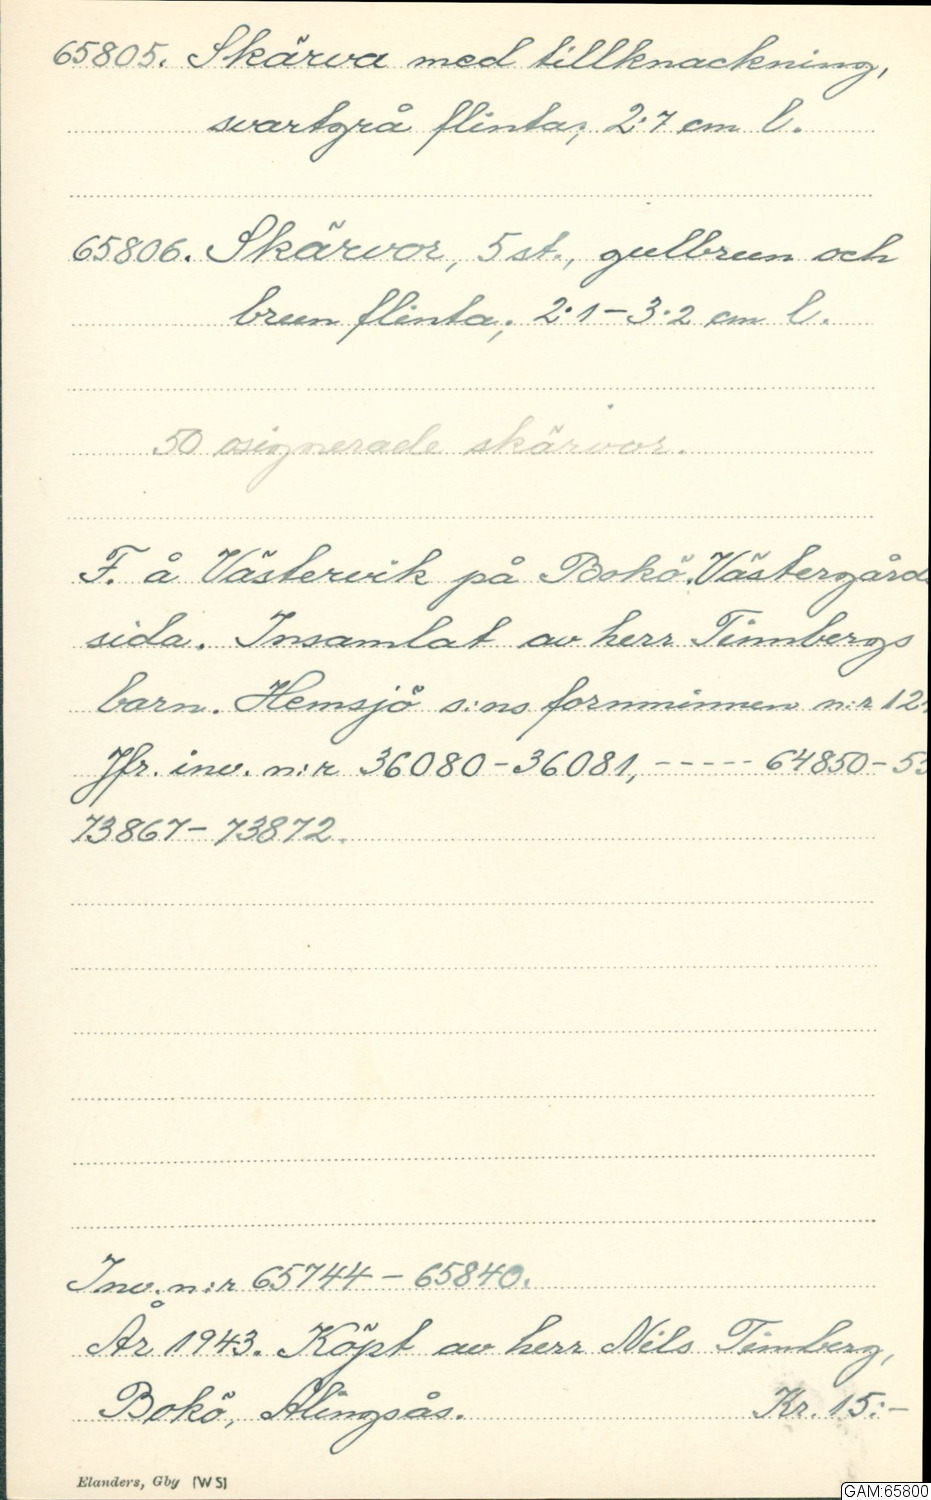 65805. Skärva med tillknackning,
svartgrå flinta; 2·7 cm l.
65806. Skärvor, 5 st., gulbrun och
brun flinta; 2·1–3·2 cm l.
50 osignerade skärvor.
F. å Västervik på Bokö. Västergårds
sida. Insamlat av herr Timbergs
barn. Hemsjö s:ns fornminnen n:r 12
Jfr. inv. n:r 36080–36081, ----- 64850–53
73867–73872.
Inv. n:r 65744–65840.
År 1943. Köpt av herr Nils Timberg,
Bokö, Alingsås. Kr. 15:–
Elanders, Gby (WS)
GAM:65800